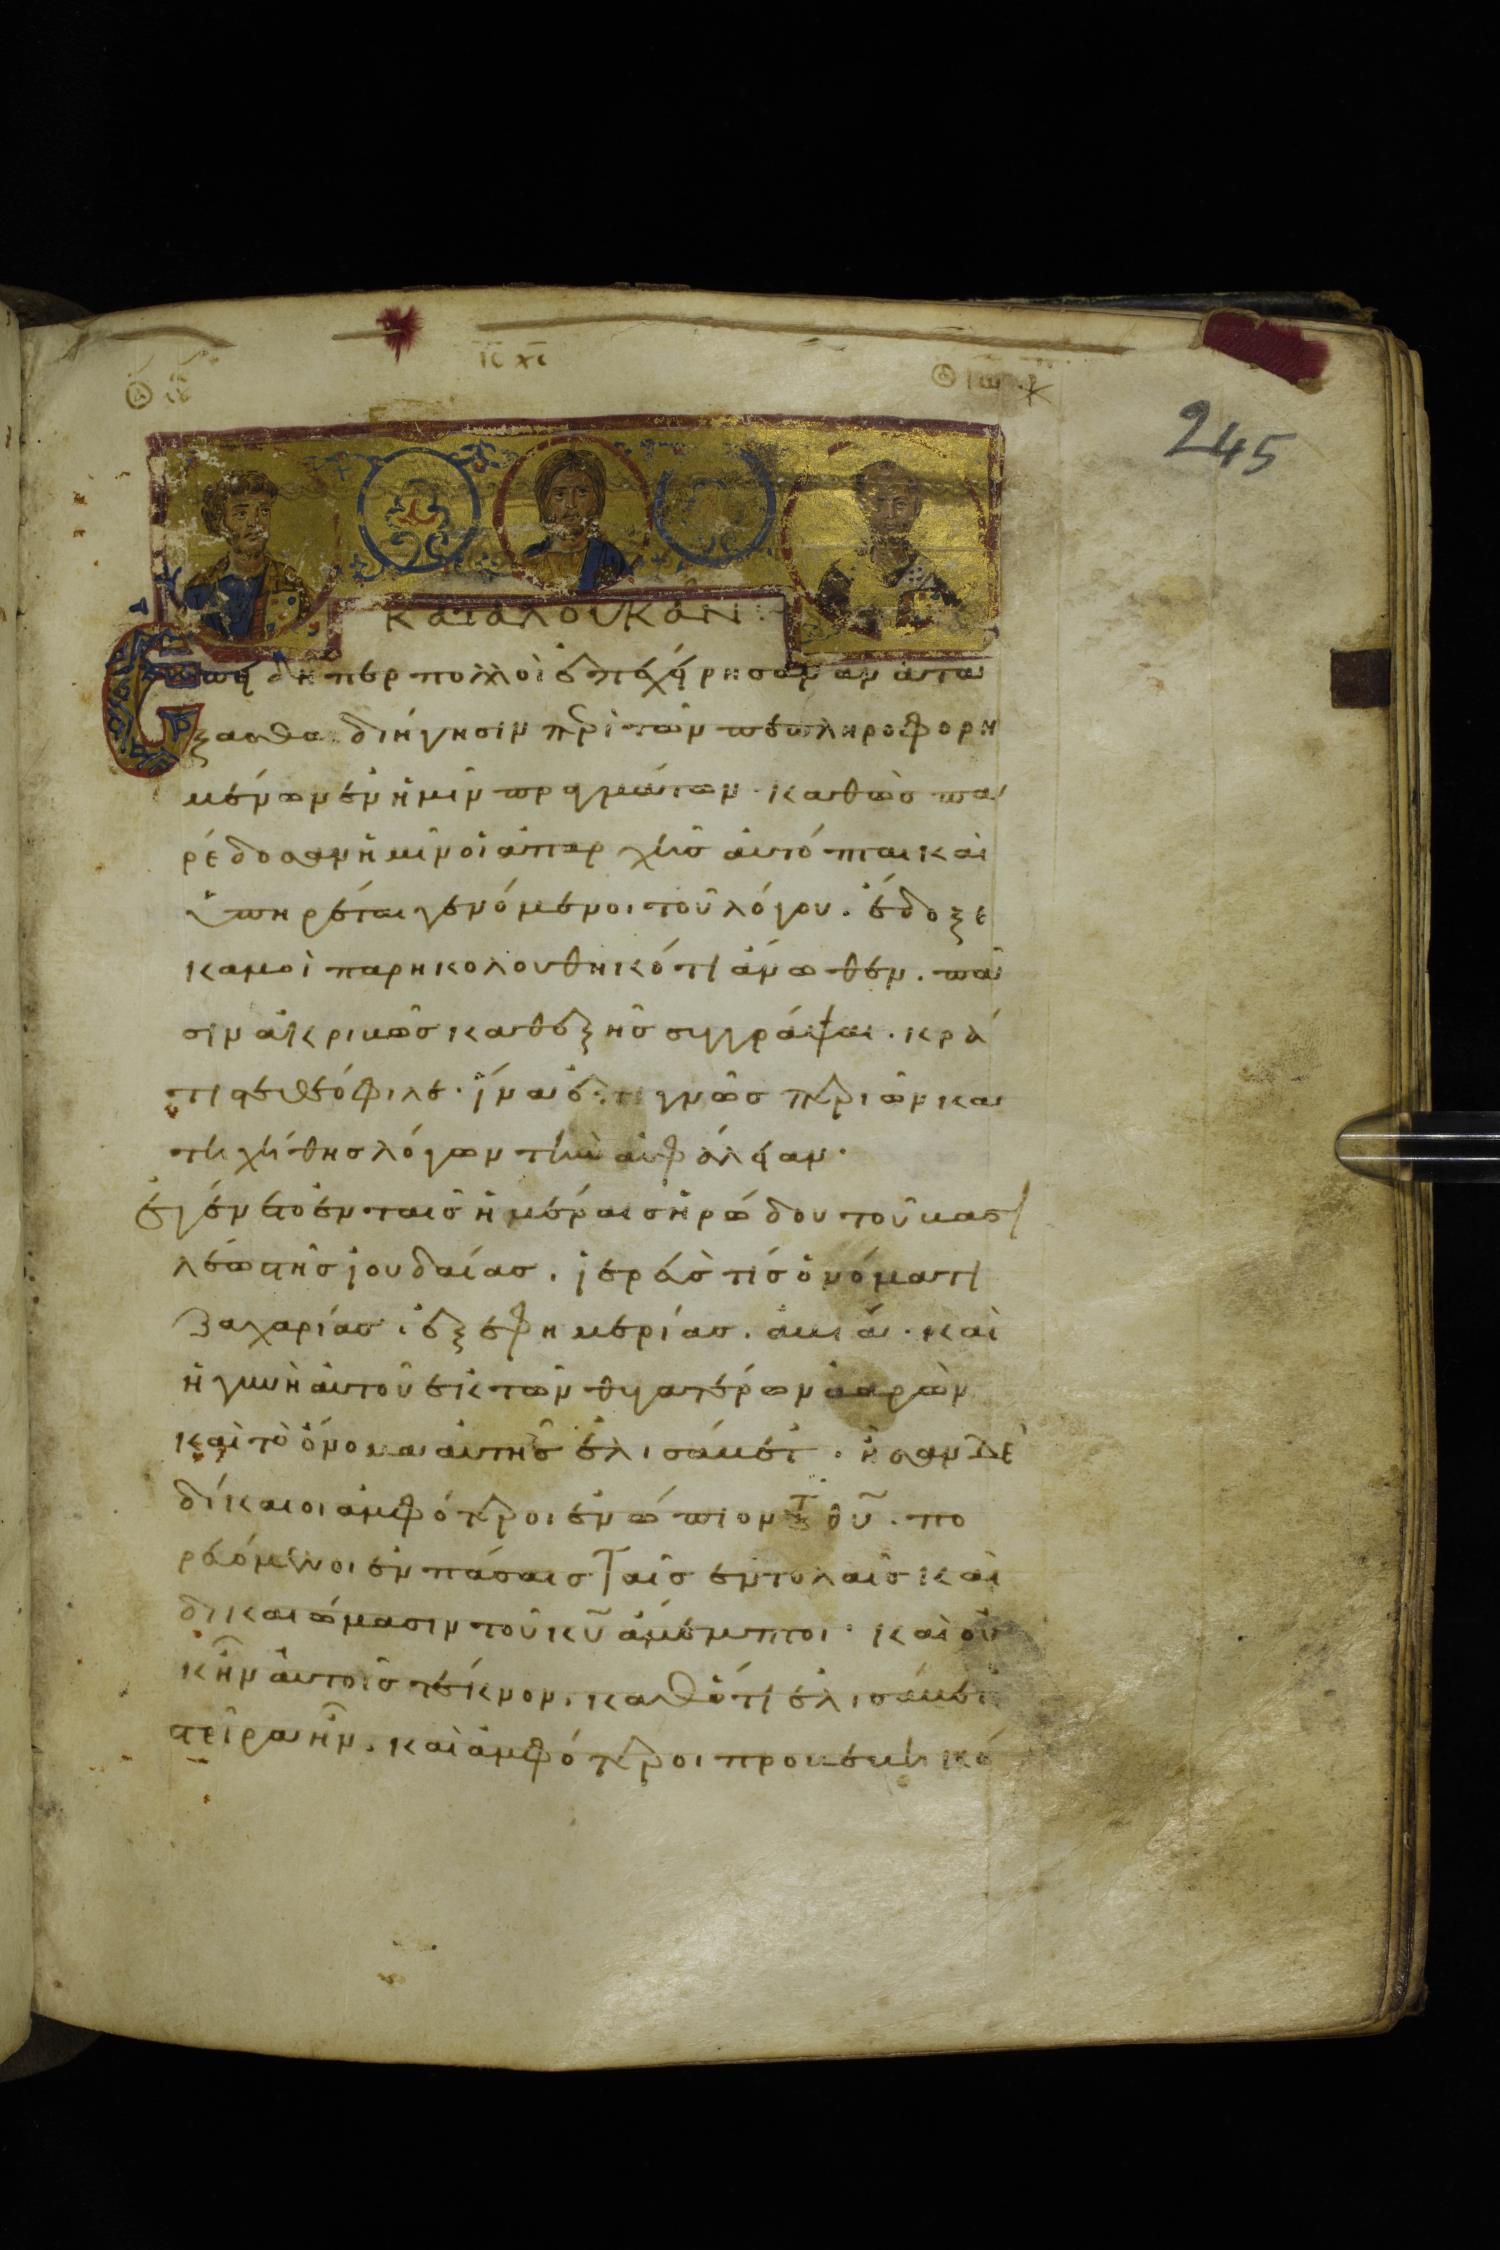 ις χς
245
κατα λουκαν:
Επειδήπερ πολλοὶ ἐπεχείρησαν ἀνατά
ξασθαι διήγησιν περὶ τῶν πεπληροφορη
μένων ἐν ἡμῖν πραγμάτων· καθὼς πα
ρέδοσαν ἡμῖν οἱ ἀπαρχῆς αὐτόπται καὶ
ὑπηρέται γενόμενοι τοῦ λόγου. ἔδοξε
καμοὶ παρηκολουθηκότι ἄνωθεν. πᾶ
σιν ἀκριβῶς καθεξῆς συγγράψαι. κρά
τιστε θεόφιλε· ἵνα ἐπιγνῶς περὶ ὧν κα
τηχήθης λόγων τὴν ἀσφάλειαν·
ἐγένετο ἐν ταῖς ἡμέραις ἡρώδου τοῦ βασι
λέως τῆς ἰουδαίας. ἱερεύς τίς ὀνόματι
ζαχαρίας. ἐξ ἐφημερίας. ἀβιά. καὶ
ἡ γυνὴ αὐτοῦ ἐκ τῶν θυγατέρων ἀαρὼν
καὶ τὸ ὄνομα αὐτῆς ἐλισάβετ. ἦσαν δὲ
δίκαιοι ἀμφότεροι ἐνώπιον τ θυ. πο
ρευόμενοι ἐν πάσαις ταῖς ἐντολαῖς καὶ
δικαιώμασιν τοῦ κυ ἄμεμπτοι· καὶ οὐ
κ ἦν αὐτοῖς τέκνον. καθότι ἐλισάβετ
στεῖρα ἦν. καὶ ἀμφότεροι προβεβηκό